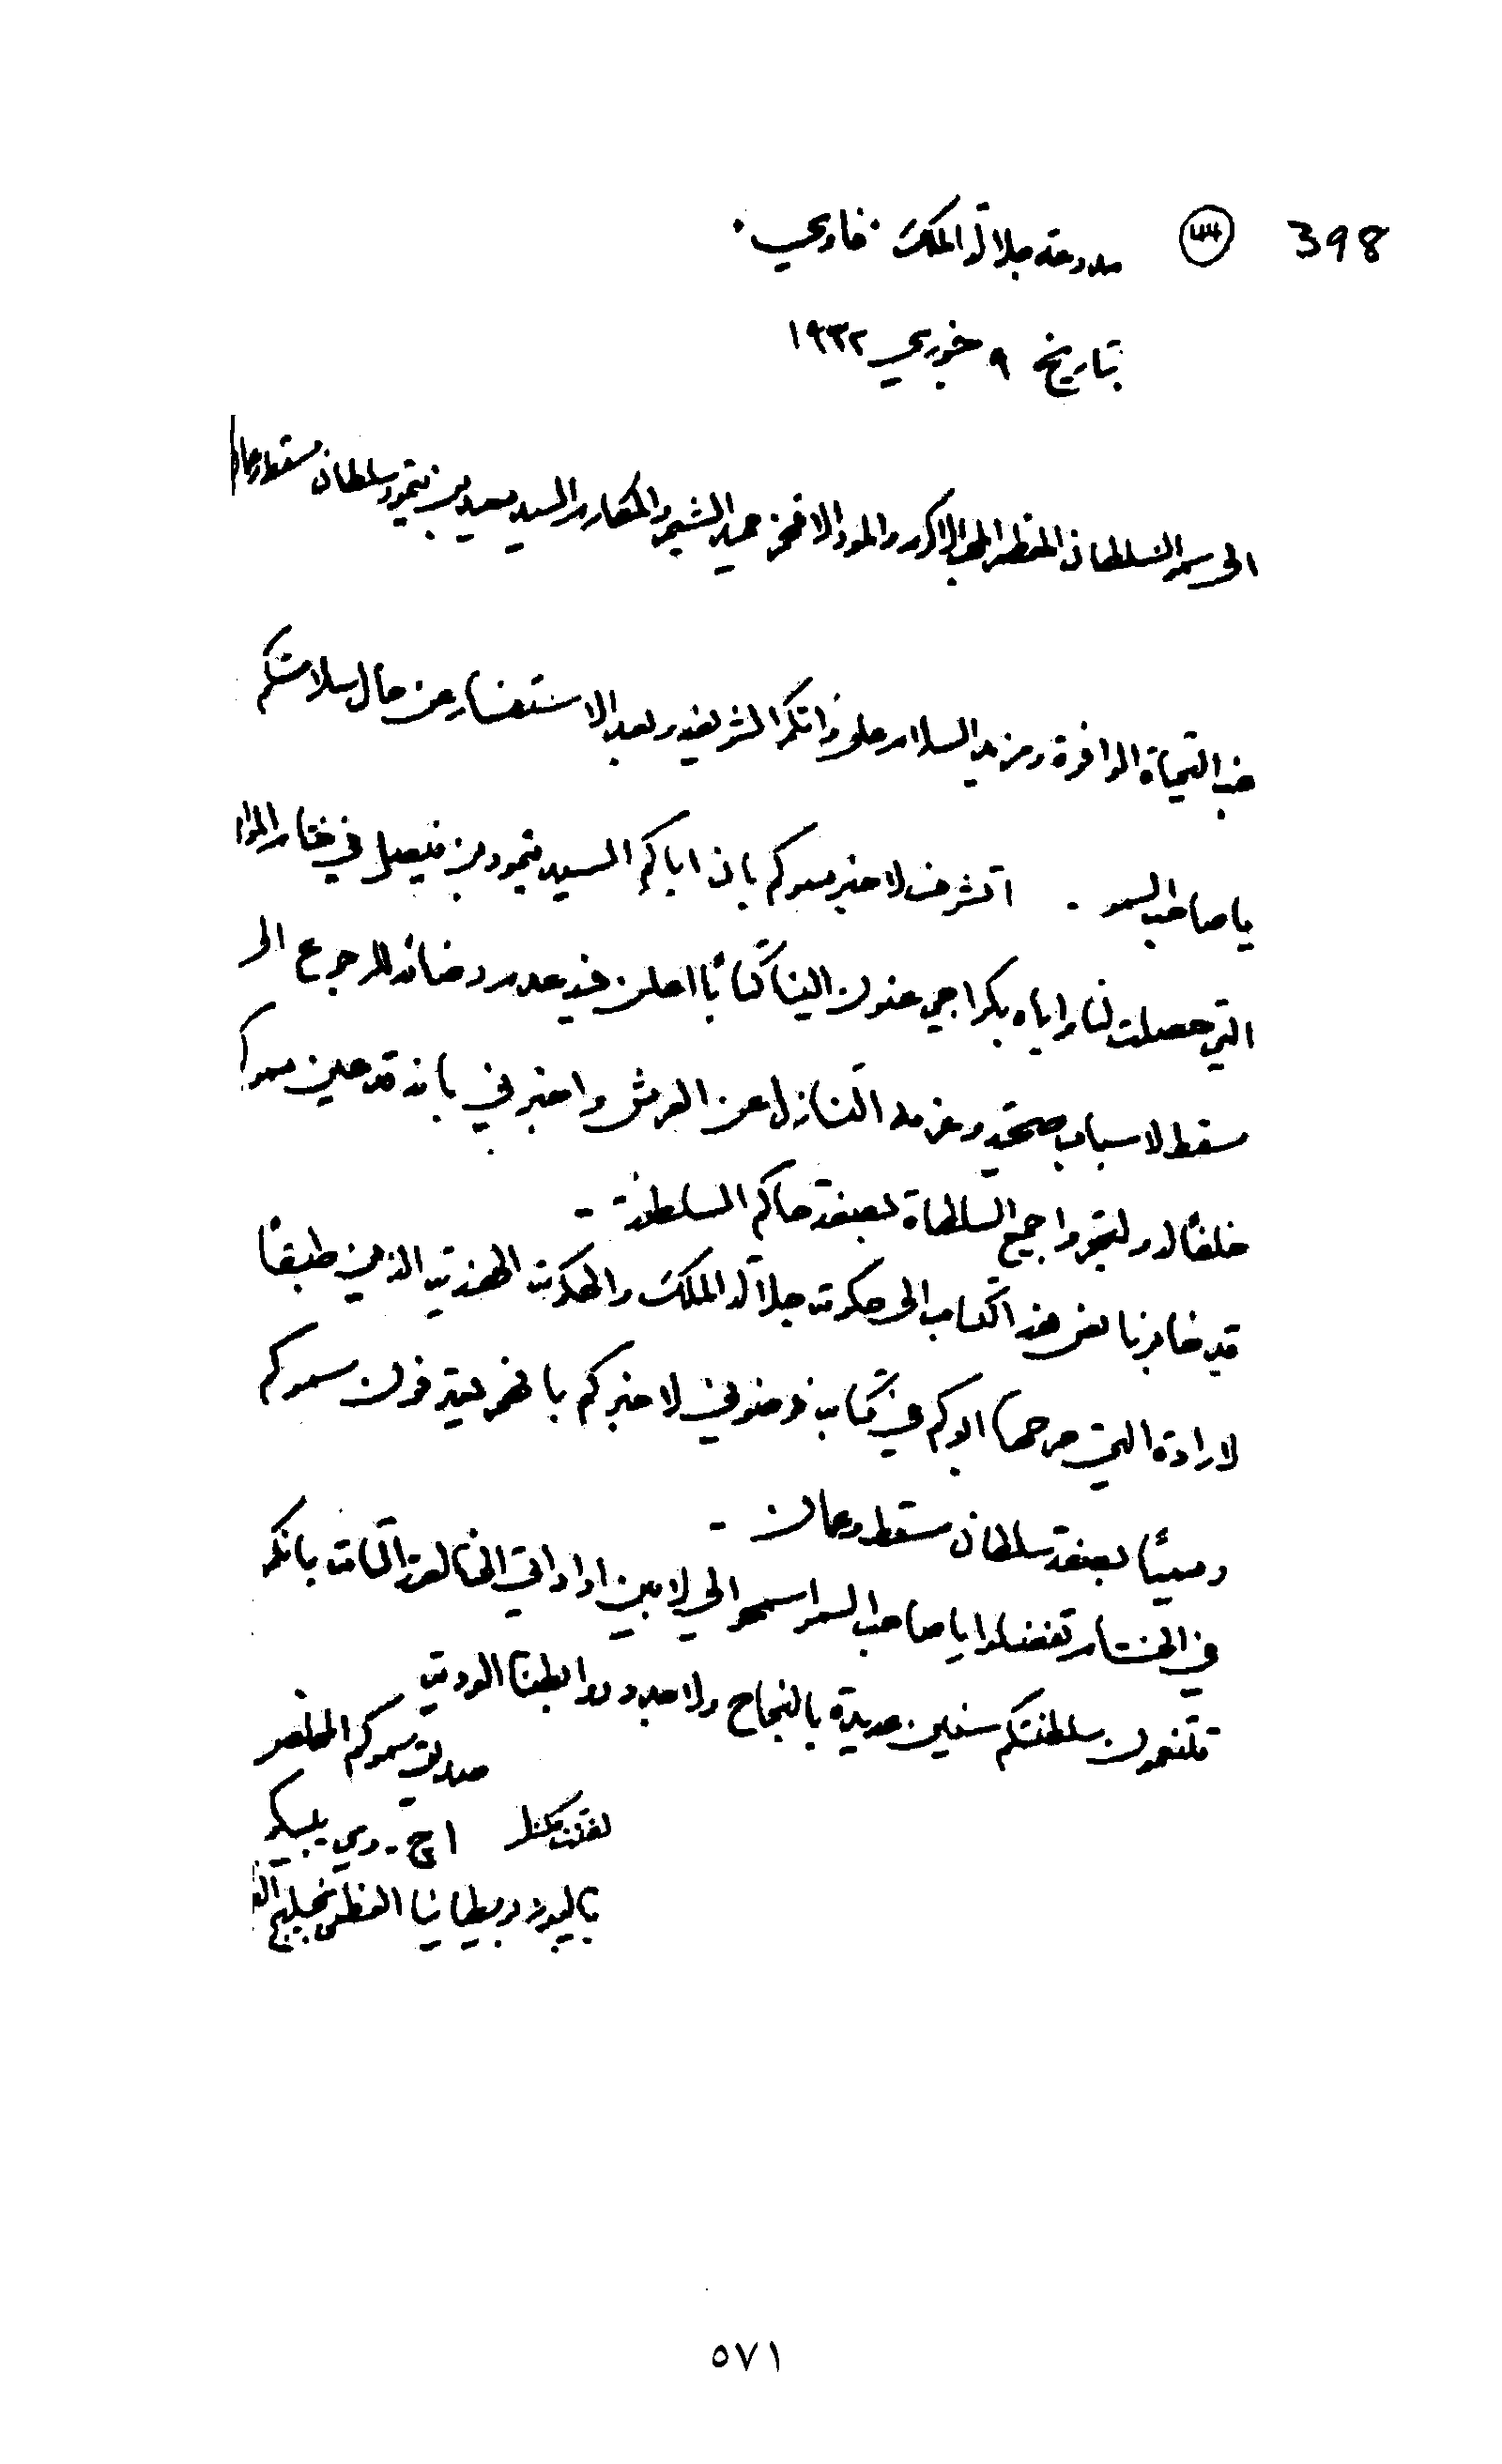 398 ٤٤ مدرعة جلالة الملك . فاوي .
بتاريخ ٩ فبروري ١٩٣٢
الى سمو السلطان المعظم المحب الاكرم والمود الافخم حميد الشيم والمكارم السيد سعيد بن تيمور سلطان مسقط وعمان
غب التحياة الوافرة ومزيد السلام على ذاتكم الشريفه وبعد الاستفسار عن حال سلامتكم
يا صاحب السمو . اتشرف لاخبر سموكم بان اباكم السيد تيمور بن فيصل في ختام
التي حصلت لنا واياه بكراجي عنون الينا كتابًا اعلن فيه عدم رضائه للرجوع الى
مسقط لاسباب صحته وعزمه التنازل عن العرش واخبرني بانه قد عين
خلفًا له ولتجروا جميع السلطاة بصفة حاكم السلطنة -
قد خابرنا نص هذا الكتاب الى حكومة جلالة الملك والحكومة الهندية الذين طبقًا
لارادة التي صرحها ابوكم في كتابه فوضوني لاخبركم بانهم يعترفون سموكم
رسميًا بصفة سلطان مسقط وعمان -
في الختام تفضلوا يا صاحب السمو اسمحوا لي لابين اراداتي الخالصة التامة بانكم
تتنعمون سلطنتكم سنين عديدة بالنجاح ولا حدود روابطنا الودية
صديق سموكم المخلص
لفتننت كرنل اچ - وي بيسكو
باليوز بريطانيا العظمى بخليج
٥٧١